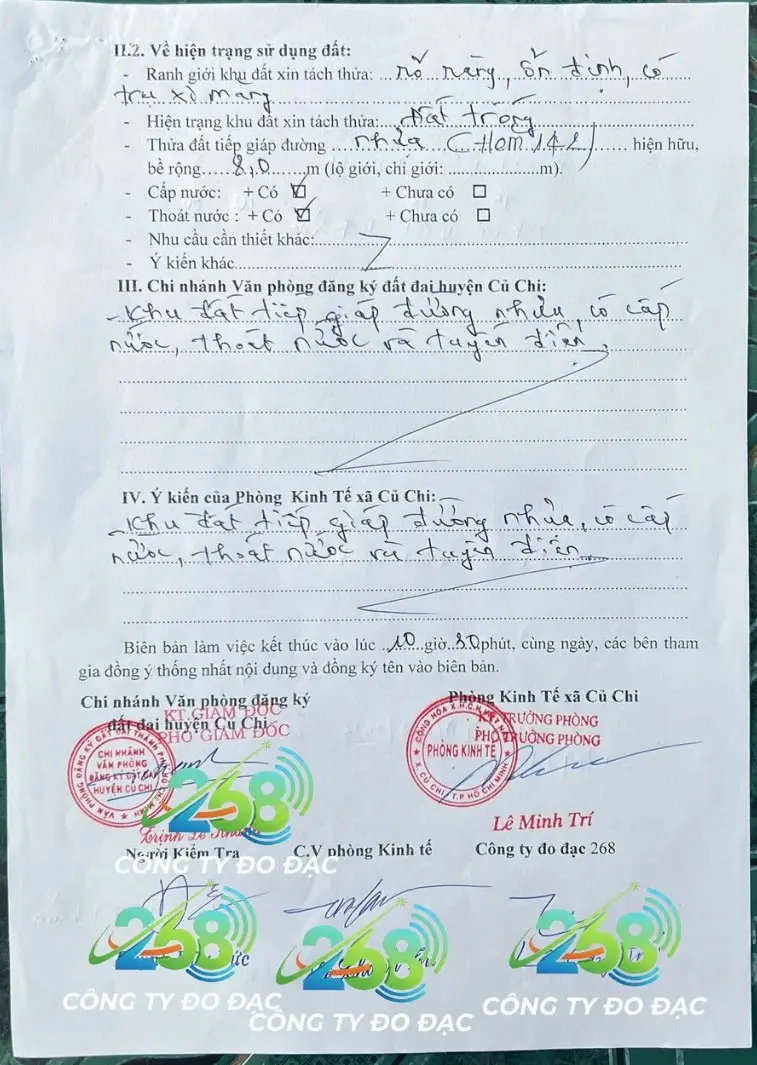 II.2. Về hiện trạng sử dụng đất:
- Ranh giới khu đất xin tách thửa: rõ ràng, ổn định, có
trụ xi măng
- Hiện trạng khu đất xin tách thửa: Đất trống
- Thửa đất tiếp giáp đường nhựa (Hẻm 142) hiện hữu,
bề rộng 8,0 m (lộ giới, chỉ giới: m).
- Cấp nước: + Có ☑ + Chưa có ☐
- Thoát nước : + Có ☑ + Chưa có ☐
- Nhu cầu cần thiết khác:
- Ý kiến khác
III. Chi nhánh Văn phòng đăng ký đất đai huyện Củ Chi:
- Khu đất tiếp giáp đường nhựa, có cấp
nước, thoát nước và tuyến điện.
IV. Ý kiến của Phòng Kinh Tế xã Củ Chi:
- Khu đất tiếp giáp đường nhựa, có cấp
nước, thoát nước và tuyến điện
Biên bản làm việc kết thúc vào lúc 10 giờ 30 phút, cùng ngày, các bên tham
gia đồng ý thống nhất nội dung và đồng ký tên vào biên bản.
Chi nhánh Văn phòng đăng ký
đất đai huyện Củ Chi
KT.GIÁM ĐỐC
PHÓ GIÁM ĐỐC
CHI NHÁNH
VĂN PHÒNG
ĐĂNG KÝ ĐẤT ĐAI
HUYỆN CỦ CHI
Phòng Kinh Tế xã Củ Chi
KT.TRƯỞNG PHÒNG
PHÓ TRƯỞNG PHÒNG
CỘNG HÒA X.H.C.N VIỆT NAM
PHÒNG KINH TẾ
X. CỦ CHI T.P HỒ CHÍ MINH
268
Trịnh Lê
Lê Minh Trí
Người Kiểm Tra
C.V phòng Kinh tế
Công ty đo đạc 268
CÔNG TY ĐO ĐẠC
268
268
268
CÔNG TY ĐO ĐẠC
CÔNG TY ĐO ĐẠC
CÔNG TY ĐO ĐẠC